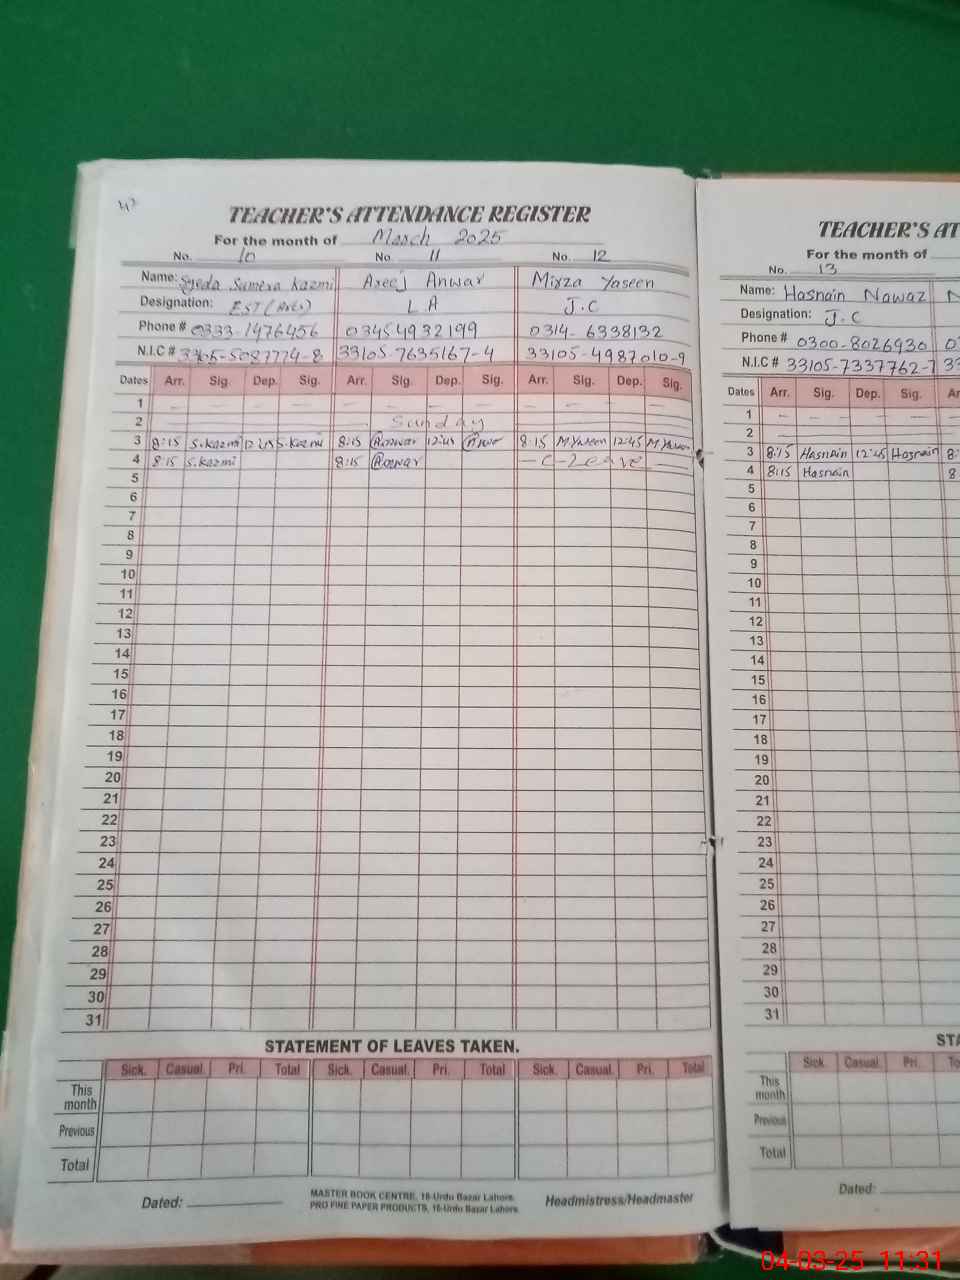 TEACHER'S ATTENDANCE REGISTER
For the month of March 2025
No. 10 No. 11 No. 12
Name: Syeda Sumera Kazmi Areej Anwar Mirza Yaseen
Designation: EST (Arts) L A J.C
Phone # 0333-1476456 03454932199 0314-6338132
N.I.C # 33105-5087774-8 33105-7635167-4 33105-4987010-9
Dates Arr. Sig. Dep. Sig. Arr. Sig. Dep. Sig. Arr. Sig. Dep. Sig.
1 — — — — — — — — — —
2 — — — — Sunday — — — —
3 8:15 S.Kazmi 12:45 S.Kazmi 8:15 Aanwar 12:45 8:15 M.Yaseen 12:45 M.Yaseen
4 8:15 S.Kazmi 8:15 Aanwar — C-Leave —
5
6
7
8
9
10
11
12
13
14
15
16
17
18
19
20
21
22
23
24
25
26
27
28
29
30
31
STATEMENT OF LEAVES TAKEN.
Sick. Casual. Pri. Total Sick. Casual. Pri. Total Sick. Casual. Pri. Total
This month
Previous
Total
Dated:
MASTER BOOK CENTRE, 16-Urdu Bazar Lahore.
PRO FINE PAPER PRODUCTS, 16-Urdu Bazar Lahore.
Headmistress/Headmaster
TEACHER'S AT
For the month of
No. 13
Name: Hasnain Nawaz
Designation: J.C
Phone # 0300-8026930
N.I.C # 33105-7337762-7 33
Dates Arr. Sig. Dep. Sig. Ar
1 — — — —
2 — — — —
3 8:15 Hasnain 12:45 Hasnain 8:
4 8:15 Hasnain 8
5
6
7
8
9
10
11
12
13
14
15
16
17
18
19
20
21
22
23
24
25
26
27
28
29
30
31
STA
Sick. Casual. Pri. To
This month
Previous
Total
Dated:
04-03-25 11:31